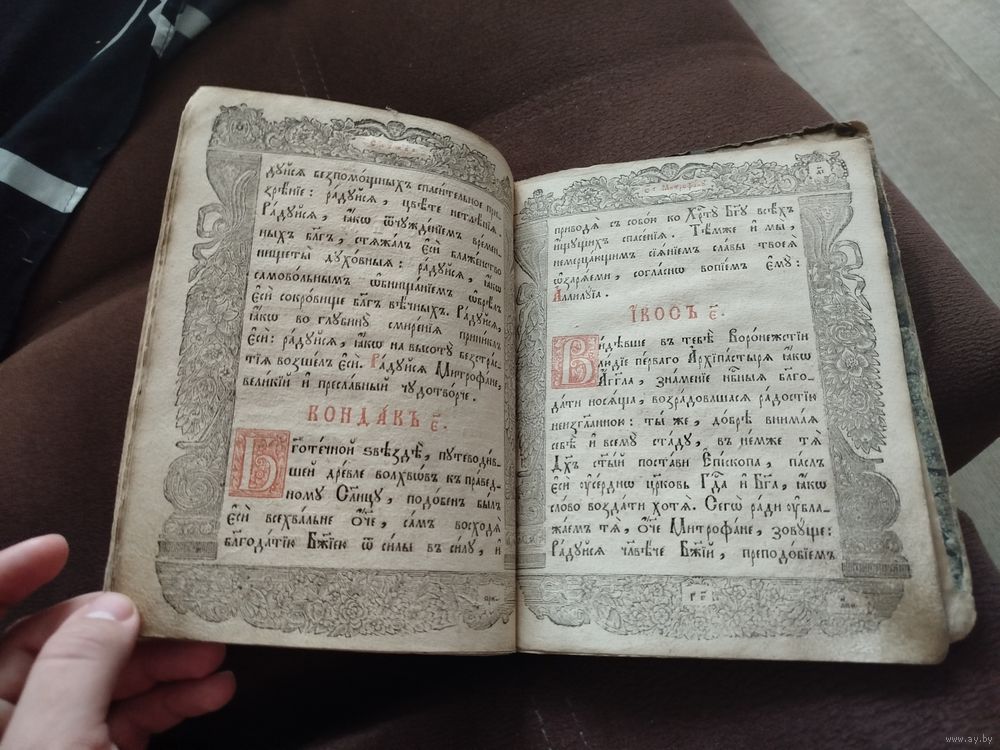 дꙋйсѧ безпомѡщныхъ спаси́тельное при-
зрѣ́нїе: ра́дꙋйсѧ, цвѣ́те нетлѣ́нїѧ.
Ра́дꙋйсѧ, ꙗ҆́кѡ ѿчꙋжде́нїемъ времен-
ныхъ бл҃гъ, стѧжа́лъ є҆сѝ блаже́нство
нищеты̀ дꙋхо́вныѧ: ра́дꙋйсѧ, ꙗ҆́кѡ
самово́льнымъ ѡ҆бнища́нїемъ ѡ҆брѣ́лъ
є҆сѝ сокро́вище бл҃гъ вѣ́чныхъ. Ра́дꙋйсѧ,
ꙗ҆́кѡ во глꙋбинꙋ̀ смире́нїѧ прини́клъ
є҆сѝ: ра́дꙋйсѧ, ꙗ҆́кѡ на высотꙋ̀ безстра́с-
тїѧ возше́лъ є҆сѝ. Ра́дꙋйсѧ Митрофа́не,
вели́кїй и҆ пресла́вный чꙋдотво́рче.
КОНДА́КЪ є҃.
Бг҃оте́чной ѕвѣздѣ̀, пꙋтеводи́в-
шей дре́вле волхвѡ́въ къ пра́вед-
номꙋ Сл҃нцꙋ, подо́бенъ бы́лъ
є҆сѝ всехва́льне ѻ҆́ч҃е, са́мъ восходѧ̀
благода́тїю Бж҃їею ѿ си́лы въ си́лꙋ, и҆
Ст҃. Митрофанꙋ
приводѧ̀ съ собо́ю ко Хр҇тꙋ̀ Бг҃ꙋ всѣ́хъ
и҆́щꙋщихъ спасе́нїѧ. Тѣ́мже и҆ мы̀,
немерца́ющимъ сїѧ́нїемъ сла́вы твоеѧ̀
ѡ҆зарѧ́еми, согла́снѡ вопїе́мъ є҆мꙋ̀:
А҆ллилꙋ́їа.
І҆́КОСЪ є҃.
Ви́дѣвше въ тебѣ̀ Воро́нежстїи
лю́дїе пе́рваго А҆рхїпа́стырѧ ꙗ҆́кѡ
А҆́гг҃ла, зна́менїе нб҇ныѧ бл҃го-
да́ти носѧ́ща, возра́довашасѧ ра́достїю
неизгл҃анною: ты́ же, до́брѣ внима́ѧ
себѣ̀ и҆ всемꙋ̀ ста́дꙋ, въ не́мже тѧ̀
Дх҃ъ ст҃ы́й поста́ви Е҆пи́скопа, па́слъ
є҆сѝ ᲂу҆се́рднѡ цр҃ковь Гд҇а и҆ Бг҃а, ꙗ҆́кѡ
сло́во возда́ти хотѧ̀. Сегѡ̀ ра́ди ᲂу҆бла-
жа́емъ тѧ̀, ѻ҆́ч҃е Митрофа́не, зовꙋ́ще:
Ра́дꙋйсѧ чл҃вѣ́че Бж҃їй, преподо́бїемъ
www.ay.by